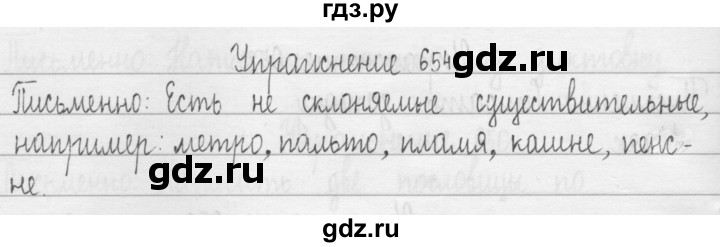 гдз.ру
Упражнение 654
gdz.ru
Письменно: Есть не склоняемые существительные,
например: метро, пальто, пламя, кашне, пенс-
не.
gdz.ru
gdz.ru
gdz.ru